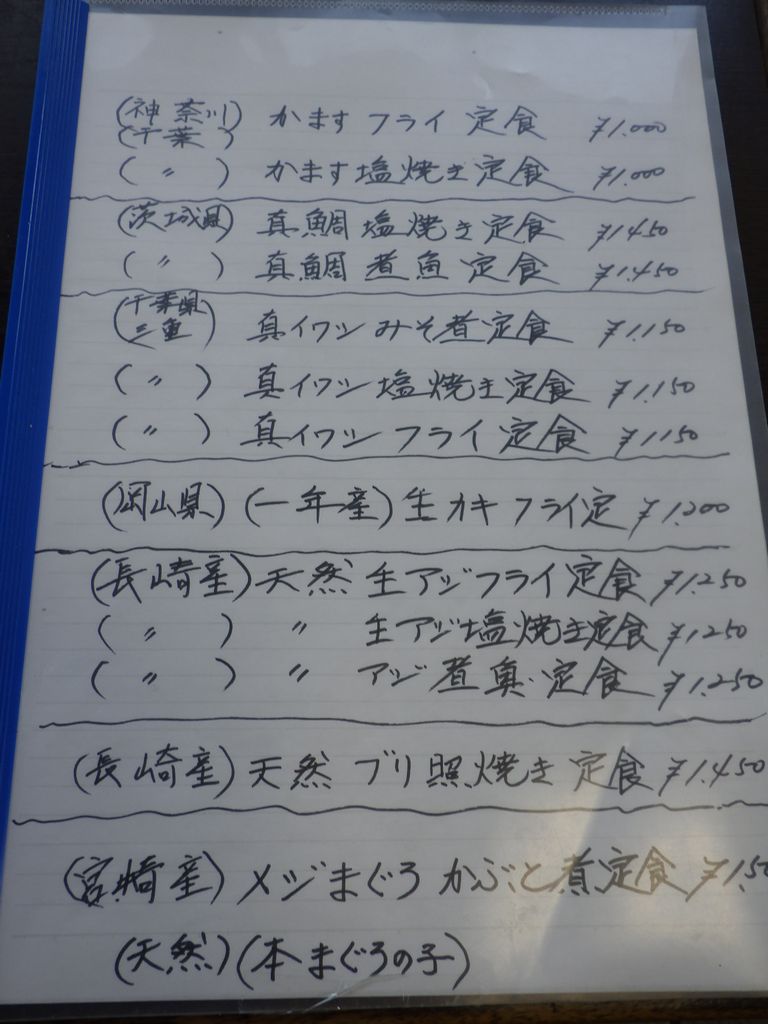 (神奈川) かます フライ 定食 ¥1.000
(千葉)
(〃) かます塩焼き定食 ¥1.000
(茨城県) 真鯛 塩焼き定食 ¥1450
(〃) 真鯛 煮魚 定食 ¥1.450
(千葉県 三重) 真イワシ みそ煮定食 ¥1.150
(〃) 真イワシ 塩焼き定食 ¥1.150
(〃) 真イワシ フライ 定食 ¥1150
(岡山県) (一年産) 生カキ フライ定 ¥1.200
(長崎産) 天然 生アジフライ定食 ¥1.250
(〃) 〃 生アジ塩焼き定食 ¥1.250
(〃) 〃 アジ 煮魚 定食 ¥1.250
(長崎産) 天然 ブリ 照焼き 定食 ¥1.450
(宮崎産) メジまぐろ かぶと煮定食
(天然) (本まぐろの子)